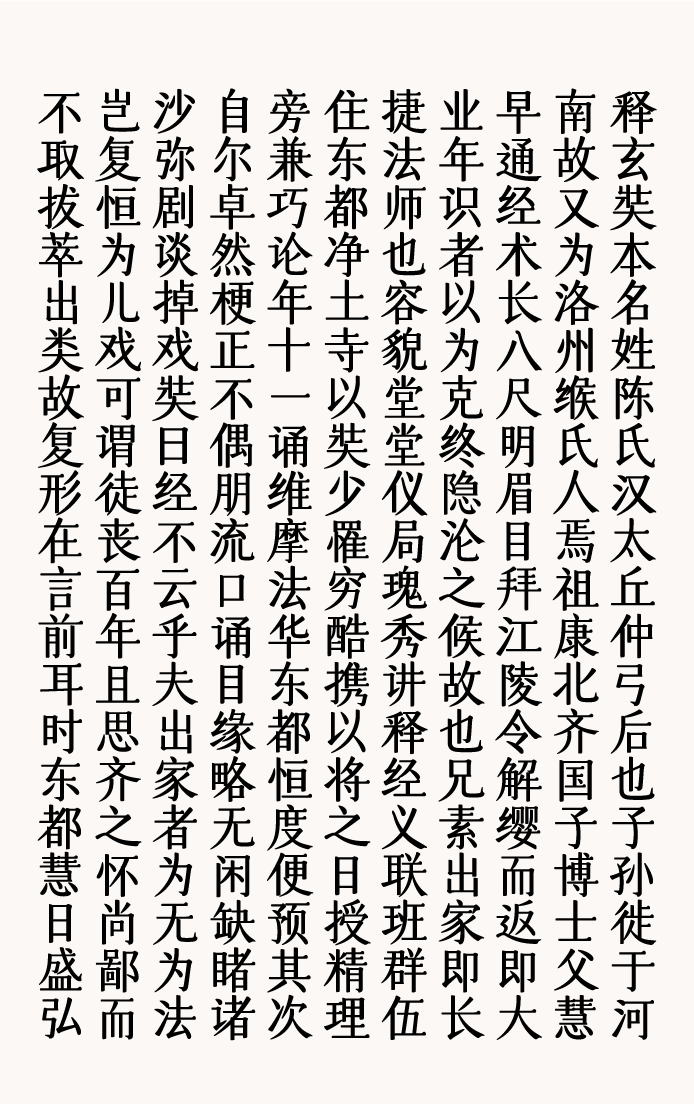 释玄奘本名姓陈氏汉太丘仲弓后也子孙徙于河
南故又为洛州缑氏人焉祖康北齐国子博士父慧
早通经术长八尺明眉目拜江陵令解缨而返即大
业年识者以为克终隐沦之候故也兄素出家即长
捷法师也容貌堂堂仪局瑰秀讲释经义联班群伍
住东都净土寺以奘少罹穷酷携以将之日授精理
旁兼巧论年十一诵维摩法华东都恒度便预其次
自尔卓然梗正不偶朋流口诵目缘略无闲缺睹诸
沙弥剧谈掉戏奘曰经不云乎夫出家者为无为法
岂复恒为儿戏可谓徒丧百年且思齐之怀尚鄙而
不取拔萃出类故复形在言前耳时东都慧日盛弘